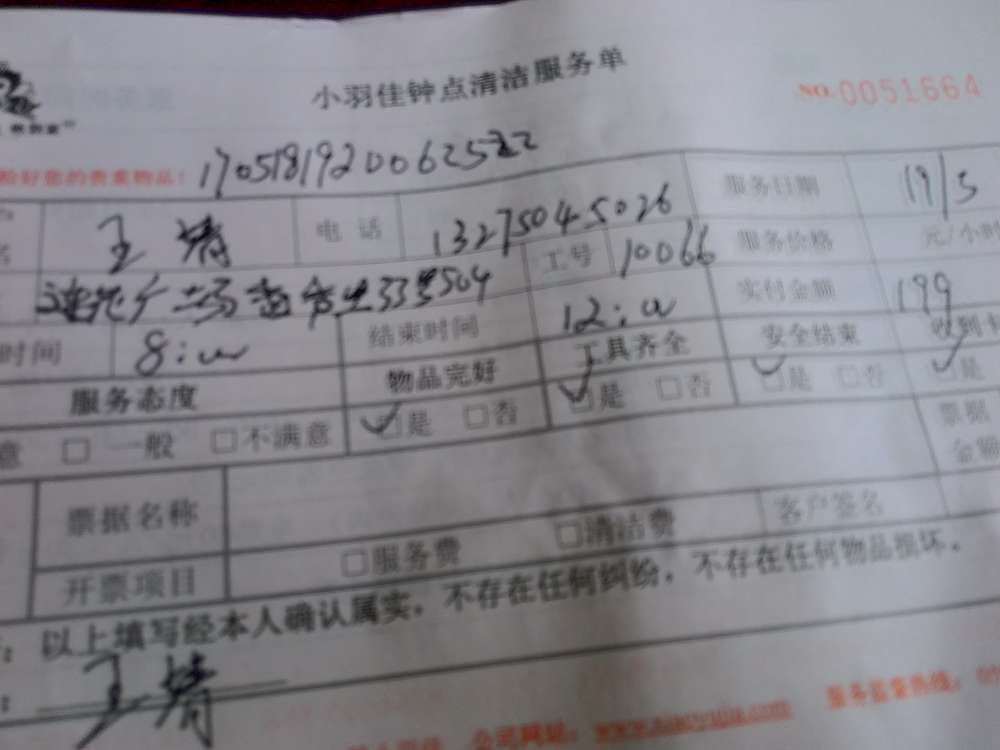 小羽佳钟点清洁服务单
NO.0051664
验好您的贵重物品!
170518192006255
王 电话 13275045026 服务日期 19/5
工号 10066 服务价格 元/小时
时间 8: 结束时间 12: 实付金额 199
服务态度 物品完好 工具齐全 安全结束 收到
意 □ 一般 □不满意 ☑是 □否 ☑是 □否 ☑是 □否 ☑是
票据
金额
票据名称
开票项目 □服务费 □清洁费 客户签名
以上填写经本人确认属实，不存在任何纠纷，不存在任何物品损坏。
王
公司网址: www.xiaoyujia.com 服务监督热线: